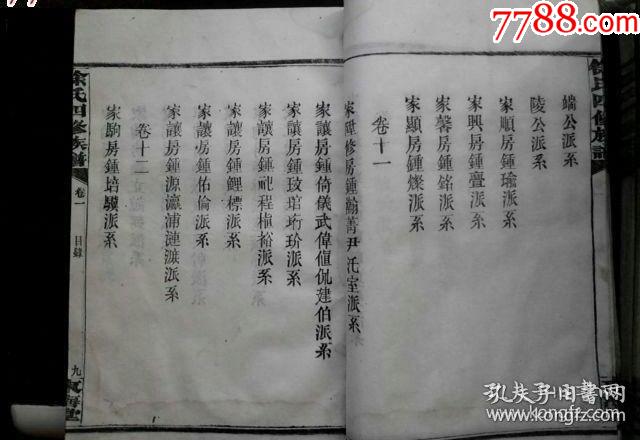 端公派系
陵公派系
家順房鍾瑜派系
家興房鍾亹派系
家馨房鍾銘派系
家顯房鍾燦派系
卷十一
家陞修房鍾翰菁尹沂室派系
家讓房鍾倚儀武偉偱侃建伯派系
家讓房鍾玟琯珩玠派系
家讓房鍾祀程植裕派系
家讓房鍾鯉標派系
家讓房鍾佑倫派系
家讓房鍾源瀛浦漣濂派系
卷十二
家駒房鍾培驥派系
徐氏四修族譜
卷一
目錄
九
海堂
徐氏四修族譜
7788.com
孔夫子旧书网
kongfz.com